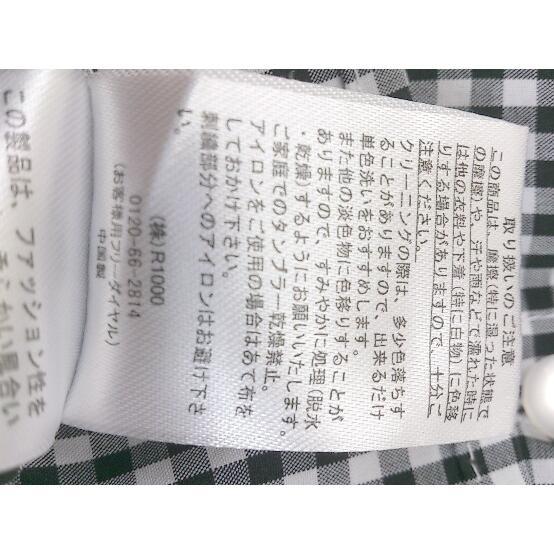 取り扱いのご注意
この商品は、摩擦(特に湿った状態で
の摩擦)や、汗や雨などで濡れた時に
は他の衣料や下着(特に白物)に色移
りする場合がありますので、十分ご
注意ください。
クリーニングの際は、多少色落ちす
ることがありますので、出来るだけ
単色洗いをおすすめします。
また他の淡色物に色移りすることが
ありますので、すみやかに処理(脱水
・乾燥)するようにお願いいたします。
ご家庭でのタンブラー乾燥禁止。
アイロンをご使用の場合はあて布を
しておかけ下さい。
刺繍部分へのアイロンはお避け下さ
い。
(株)R1000
0120-66-2814
(お客様用フリーダイヤル)
中国製
この製品は、ファッション性を